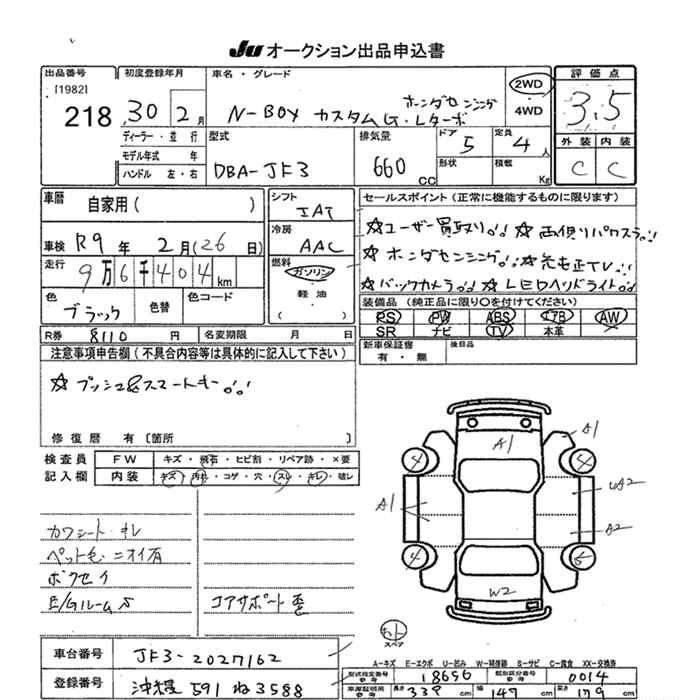 JU オークション出品申込書
出品番号 初度登録年月 車名・グレード 評価点
[1982]
218 30 2月 N-BOX カスタムG・Lターボ ホンダセンシング 2WD 4WD 3.5
ディーラー・並行 型式 排気量 ドア 定員 外装 内装
モデル年式 年 5 4人
ハンドル 左・右 DBA-JF3 660cc 形状 積載 Kg C C
車歴 自家用( ) シフト IAT セールスポイント(正常に機能するものに限ります)
車検 R9年 2月(26日) 冷房 AAC ☆ユーザー買取り!! ☆両側パワスラ!!
走行 9万6千404km 燃料 ガソリン ☆ホンダセンシング!! ☆純正TV!!
軽油 ☆バックカメラ!! ☆LEDヘッドライト!!
色 ブラック 色替 色コード ( )
装備品(純正品に限り○を付けてください)
PS PW ABS エアB AW
R券 8110円 名変期限 月 日 SR ナビ TV 本革
注意事項申告欄(不具合内容等は具体的に記入して下さい) 新車保証書 有・無 後日品
☆プッシュ&スマートキー!!
修復歴 有〔箇所 〕
検査員 FW キズ・飛石・ヒビ割・リペア跡・×要
記入欄 内装 キズ・汚れ・コゲ・穴・スレ・キレ・破レ
A1 A1
4 4
A1 UA2
A2
4
W2
カワシート キレ
ペット毛 ニオイ有
ボクセイ
E/Gルーム S コアサポート 歪
スペア
車台番号 JF3-2027162
A-キズ E-エクボ U-凹み W-補修跡 S-サビ C-腐食 XX-交換済
型式指定番号 参考 18656 類別区分番号 参考 0014
登録番号 沖縄 591 ね 3588
車庫証明用 参考 長さ cm 幅 cm 高さ cm